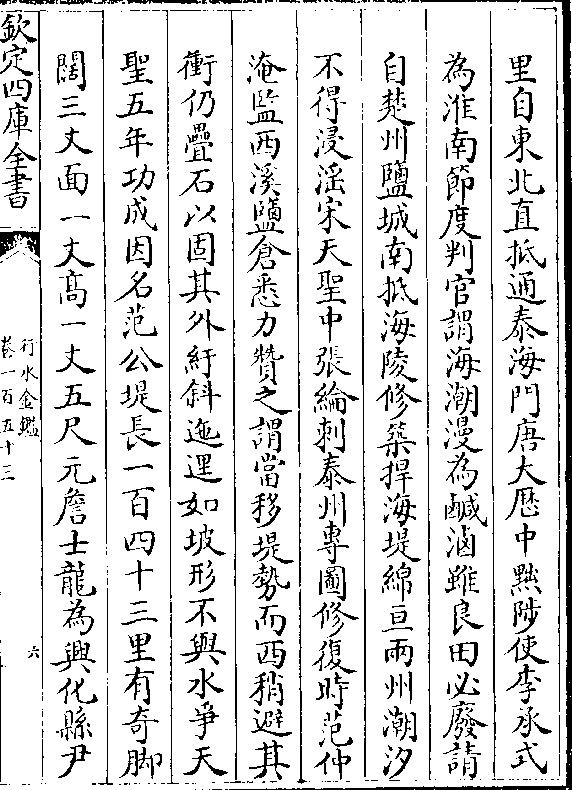 里自東北直抵通泰海門唐大厯中黜陟使李承式
為淮南節度判官謂海潮漫為鹹滷雖良田必廢請
自楚州鹽城南抵海陵修築捍海堤綿亘兩州潮汐
不得浸淫宋天聖中張綸刺泰州專圖修復時范仲
淹監西溪鹽倉悉力贊之謂當移堤勢而西稍避其
衝仍疊石以固其外紆斜迤邐如坡形不與水爭天
聖五年功成因名范公堤長一百四十三里有奇脚
闊三丈面一丈髙一丈五尺元詹士龍為興化縣尹
欽定四庫全書
行水金鑑
卷一百五十三
六